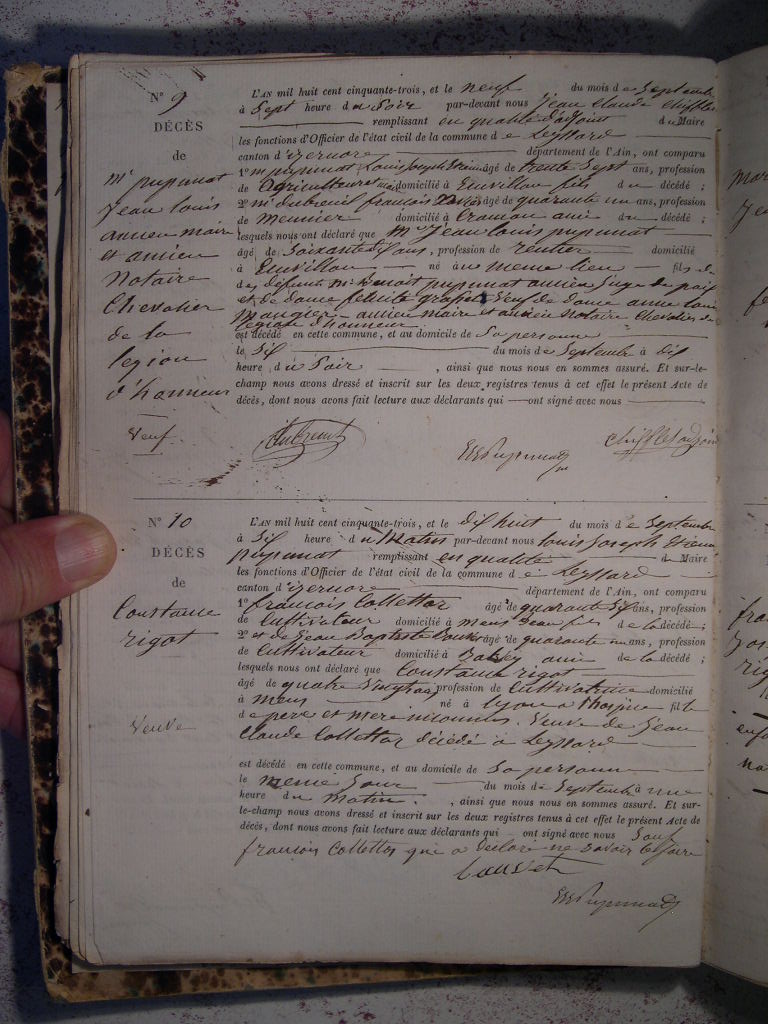 N° 9
DÉCÈS
de
Mr pupunat
Jean louis
ancien maire
et ancien
Notaire
Chevalier
de la
legion
d'honneur
Veuf
L'AN mil huit cent cinquante-trois, et le neuf du mois de Septembre
à Sept heure du Soir par-devant nous Jean Claude Chifflet
remplissant en qualité d'adjoint du Maire
les fonctions d'Officier de l'état civil de la commune de Leyssard
canton d'izernore département de l'Ain, ont comparu
1° Mr pupunat Louis Joseph âgé de trente Sept ans, profession
de Agriculteur domicilié à Leuvillon fils du décédé ;
2° Mr dubreuil françois âgé de quarante un ans, profession
de Meunier domicilié à ami du décédé ;
lesquels nous ont déclaré que Mr Jean louis pupunat
âgé de Soixante dix ans, profession de rentier domicilié
à Leuvillon né à u meme lieu fils de
des defunts Mr Benoit pupunat ancien Juge de paix
et de dame felicite Veuf de dame anne
Maugier ancien maire et ancien Notaire Chevalier de
legion d'honneur
est décédé en cette commune, et au domicile de Sa personne
le Six du mois de Septembre à dix
heure du Soir , ainsi que nous nous en sommes assuré. Et sur-le-
champ nous avons dressé et inscrit sur les deux registres tenus à cet effet le présent Acte de
décès, dont nous avons fait lecture aux déclarants qui ont signé avec nous
Dubreuil
Pupunat
Chifflet adjoint
N° 10
DÉCÈS
de
Constance
rigot
Veuve
L'AN mil huit cent cinquante-trois, et le dix huit du mois de Septembre
à Six heure du Matin par-devant nous louis Joseph
pupunat remplissant en qualité d Maire
les fonctions d'Officier de l'état civil de la commune de Leyssard
canton d'izernore département de l'Ain, ont comparu
1° françois Collettaz âgé de quarante Six ans, profession
de Cultivateur domicilié à Mens fils de la décédée ;
2° et de Jean Baptiste âgé de quarante ans, profession
de Cultivateur domicilié à ami de la décédé ;
lesquels nous ont déclaré que Constance rigot
âgé de quatre Vingt profession de Cultivatrice domicilié
à Mens né à Lyon a l'hospice fille
de pere et mere inconnus Veuve de Jean
Claude Collettaz décédé à Leyssard
est décédé en cette commune, et au domicile de Sa personne
le meme Jour du mois de Septembre à une
heure du matin , ainsi que nous nous en sommes assuré. Et sur-
le-champ nous avons dressé et inscrit sur les deux registres tenus à cet effet le présent Acte de
décès, dont nous avons fait lecture aux déclarants qui ont signé avec nous Sauf
françois Collettaz qui a declaré ne savoir le faire
Pupunat